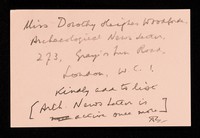 Miss Dorothy Heigher Woodford
Archaeological News Letter,
273, Gray's Inn Road,
London, W.C.1
Kindly add to list
[Arch News Letter is
active once more]